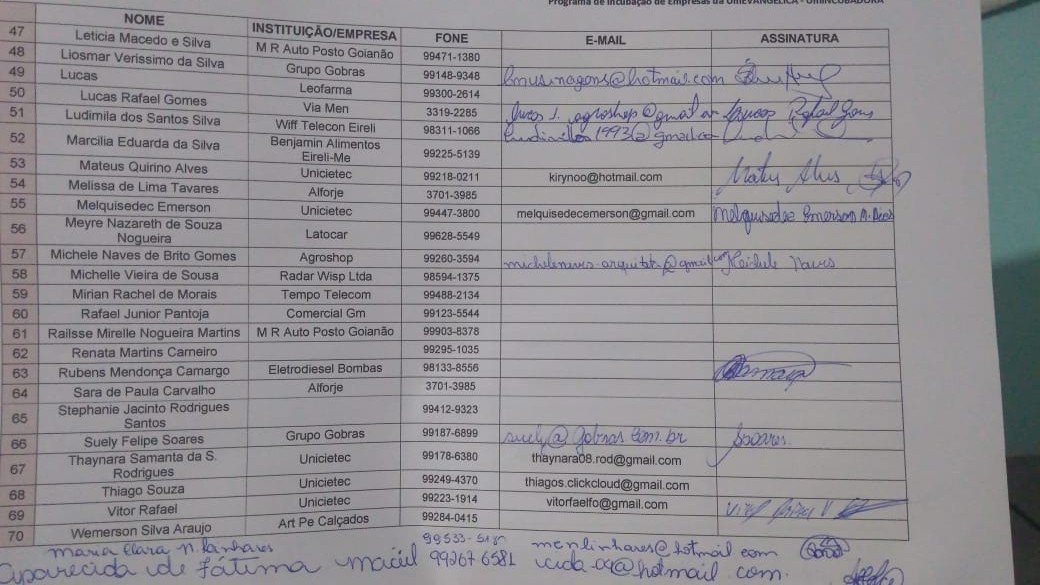 Programa de Incubação de Empresas da UniEVANGÉLICA - UniINCUBADORA
NOME INSTITUIÇÃO/EMPRESA FONE E-MAIL ASSINATURA
47 Leticia Macedo e Silva M R Auto Posto Goianão 99471-1380
48 Liosmar Verissimo da Silva Grupo Gobras 99148-9348 @hotmail.com
49 Lucas Leofarma 99300-2614
50 Lucas Rafael Gomes Via Men 3319-2285 Lucas Rafael Gomes
51 Ludimila dos Santos Silva Wiff Telecon Eireli 98311-1066
52 Marcilia Eduarda da Silva Benjamin Alimentos Eireli-Me 99225-5139
53 Mateus Quirino Alves Unicietec 99218-0211 kirynoo@hotmail.com
54 Melissa de Lima Tavares Alforje 3701-3985
55 Melquisedec Emerson Unicietec 99447-3800 melquisedecemerson@gmail.com Melquisedec Emerson
56 Meyre Nazareth de Souza Nogueira Latocar 99628-5549
57 Michele Naves de Brito Gomes Agroshop 99260-3594 Naves
58 Michelle Vieira de Sousa Radar Wisp Ltda 98594-1375
59 Mirian Rachel de Morais Tempo Telecom 99488-2134
60 Rafael Junior Pantoja Comercial Gm 99123-5544
61 Railsse Mirelle Nogueira Martins M R Auto Posto Goianão 99903-8378
62 Renata Martins Carneiro 99295-1035
63 Rubens Mendonça Camargo Eletrodiesel Bombas 98133-8556
64 Sara de Paula Carvalho Alforje 3701-3985
65 Stephanie Jacinto Rodrigues Santos 99412-9323
66 Suely Felipe Soares Grupo Gobras 99187-6899 suely@gobras.com.br Soares
67 Thaynara Samanta da S. Rodrigues Unicietec 99178-6380 thaynara08.rod@gmail.com
68 Thiago Souza Unicietec 99249-4370 thiagos.clickcloud@gmail.com
69 Vitor Rafael Unicietec 99223-1914 vitorfaelfo@gmail.com
70 Wemerson Silva Araujo Art Pe Calçados 99284-0415
Maria Clara N. Linhares menlinhares@hotmail.com
Aparecida de Fátima Maciel 99267 6581